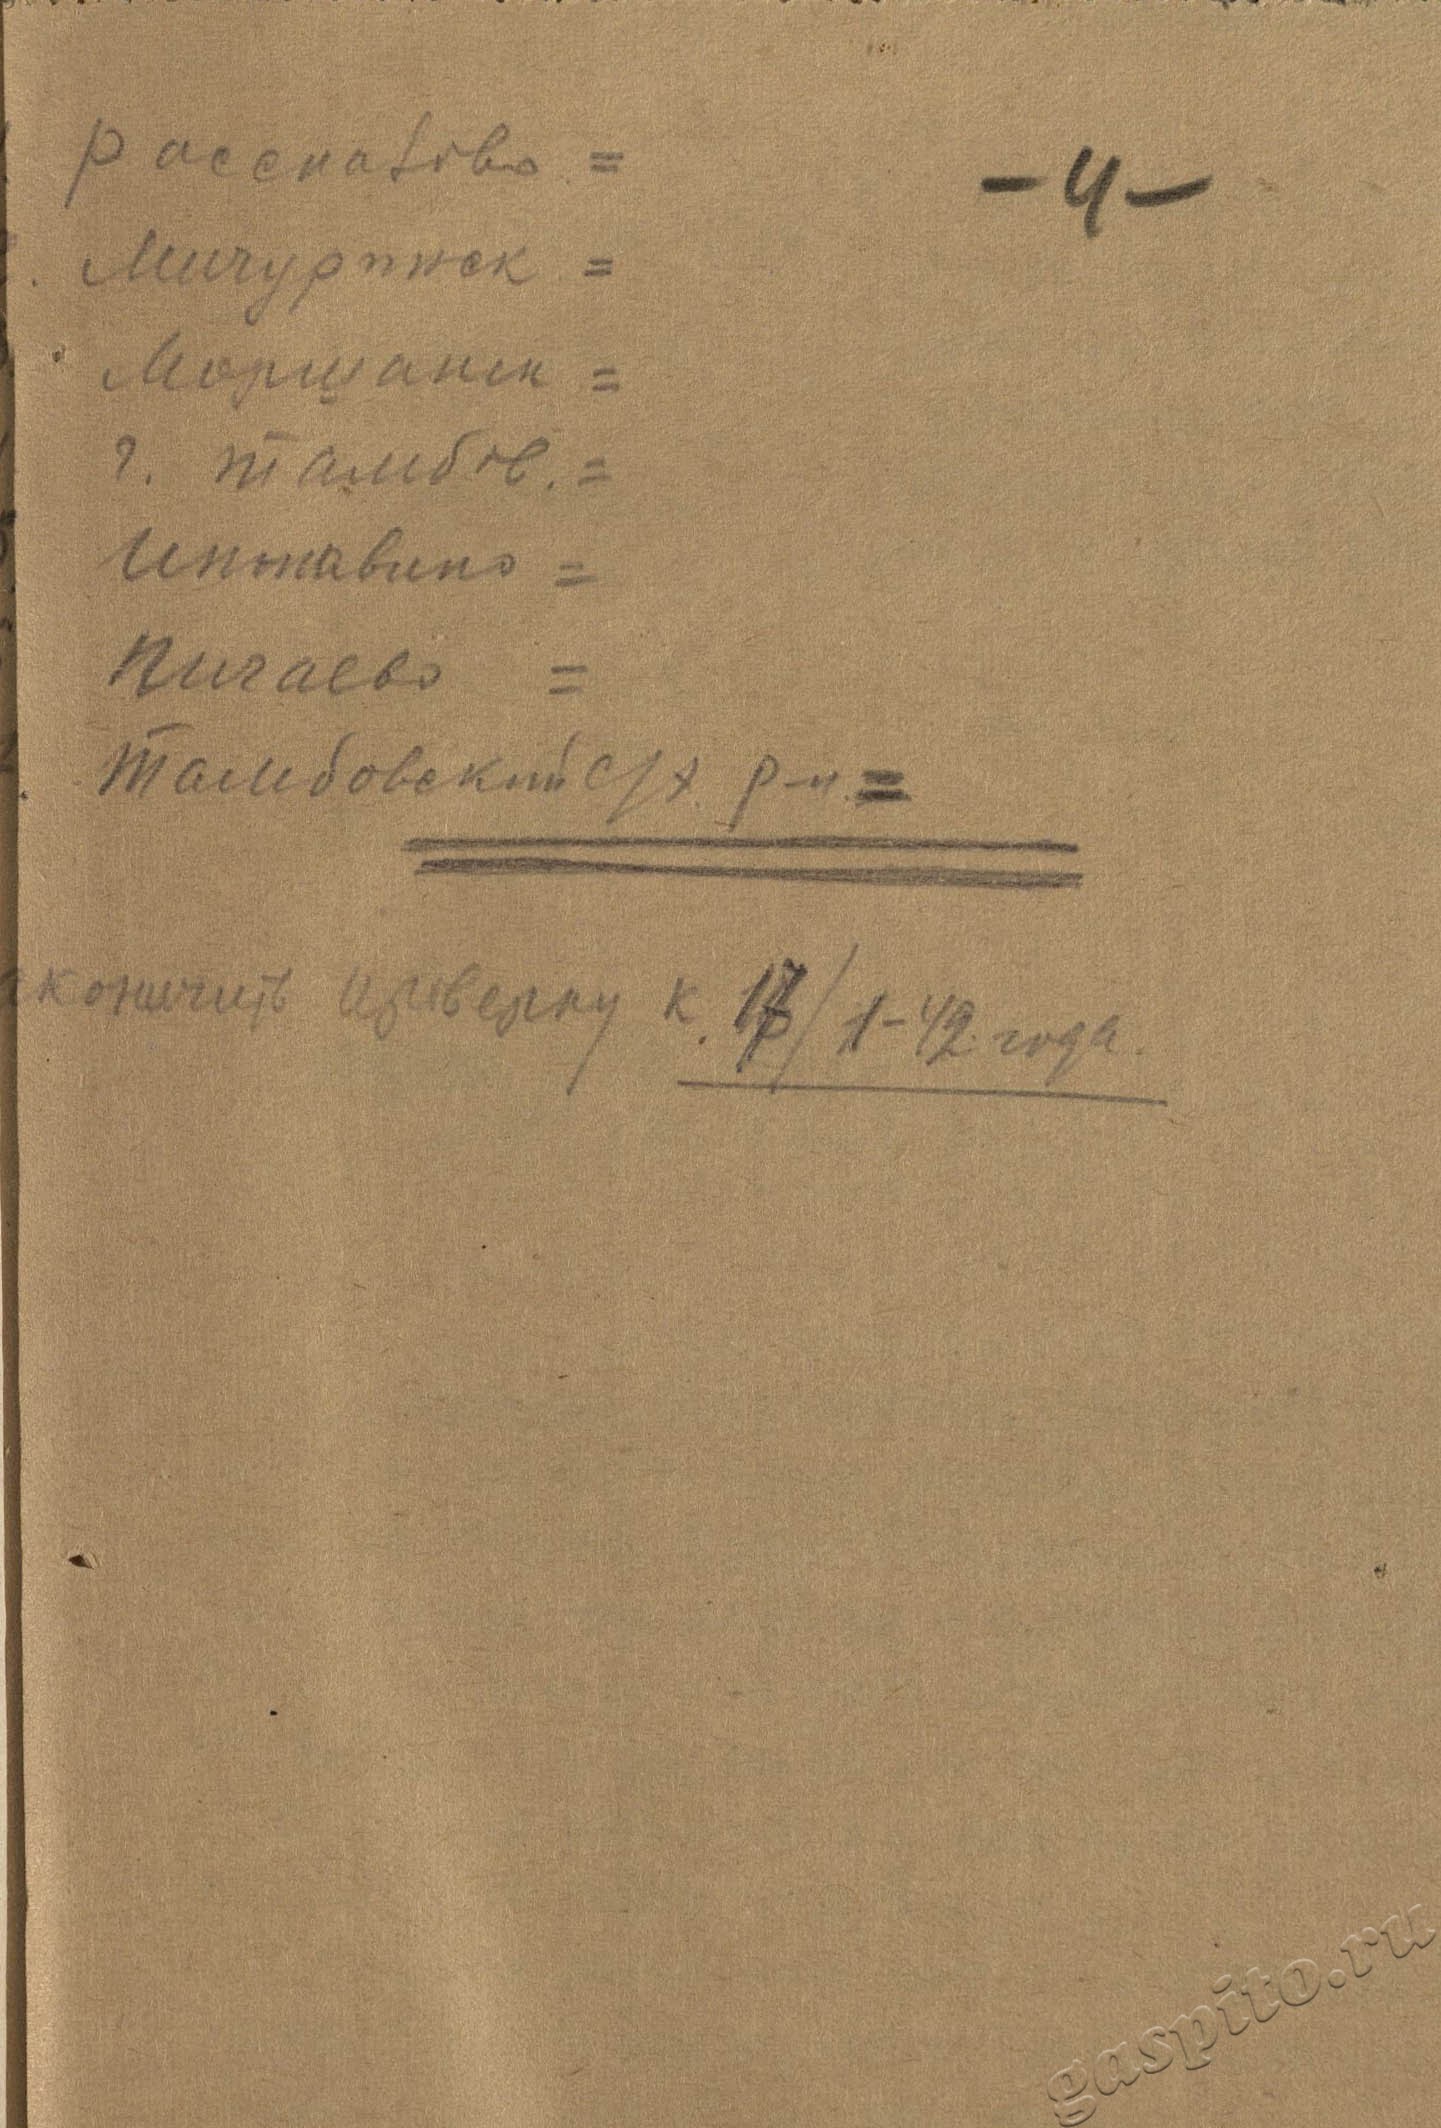 Рассказово =
-4-
Мичуринск =
Моршанск =
г. Тамбов. =
Инжавино =
Пичаево =
Тамбовский с/х. р-н. =
кончить проверку к. 17/1-42 года.
gaspito.ru